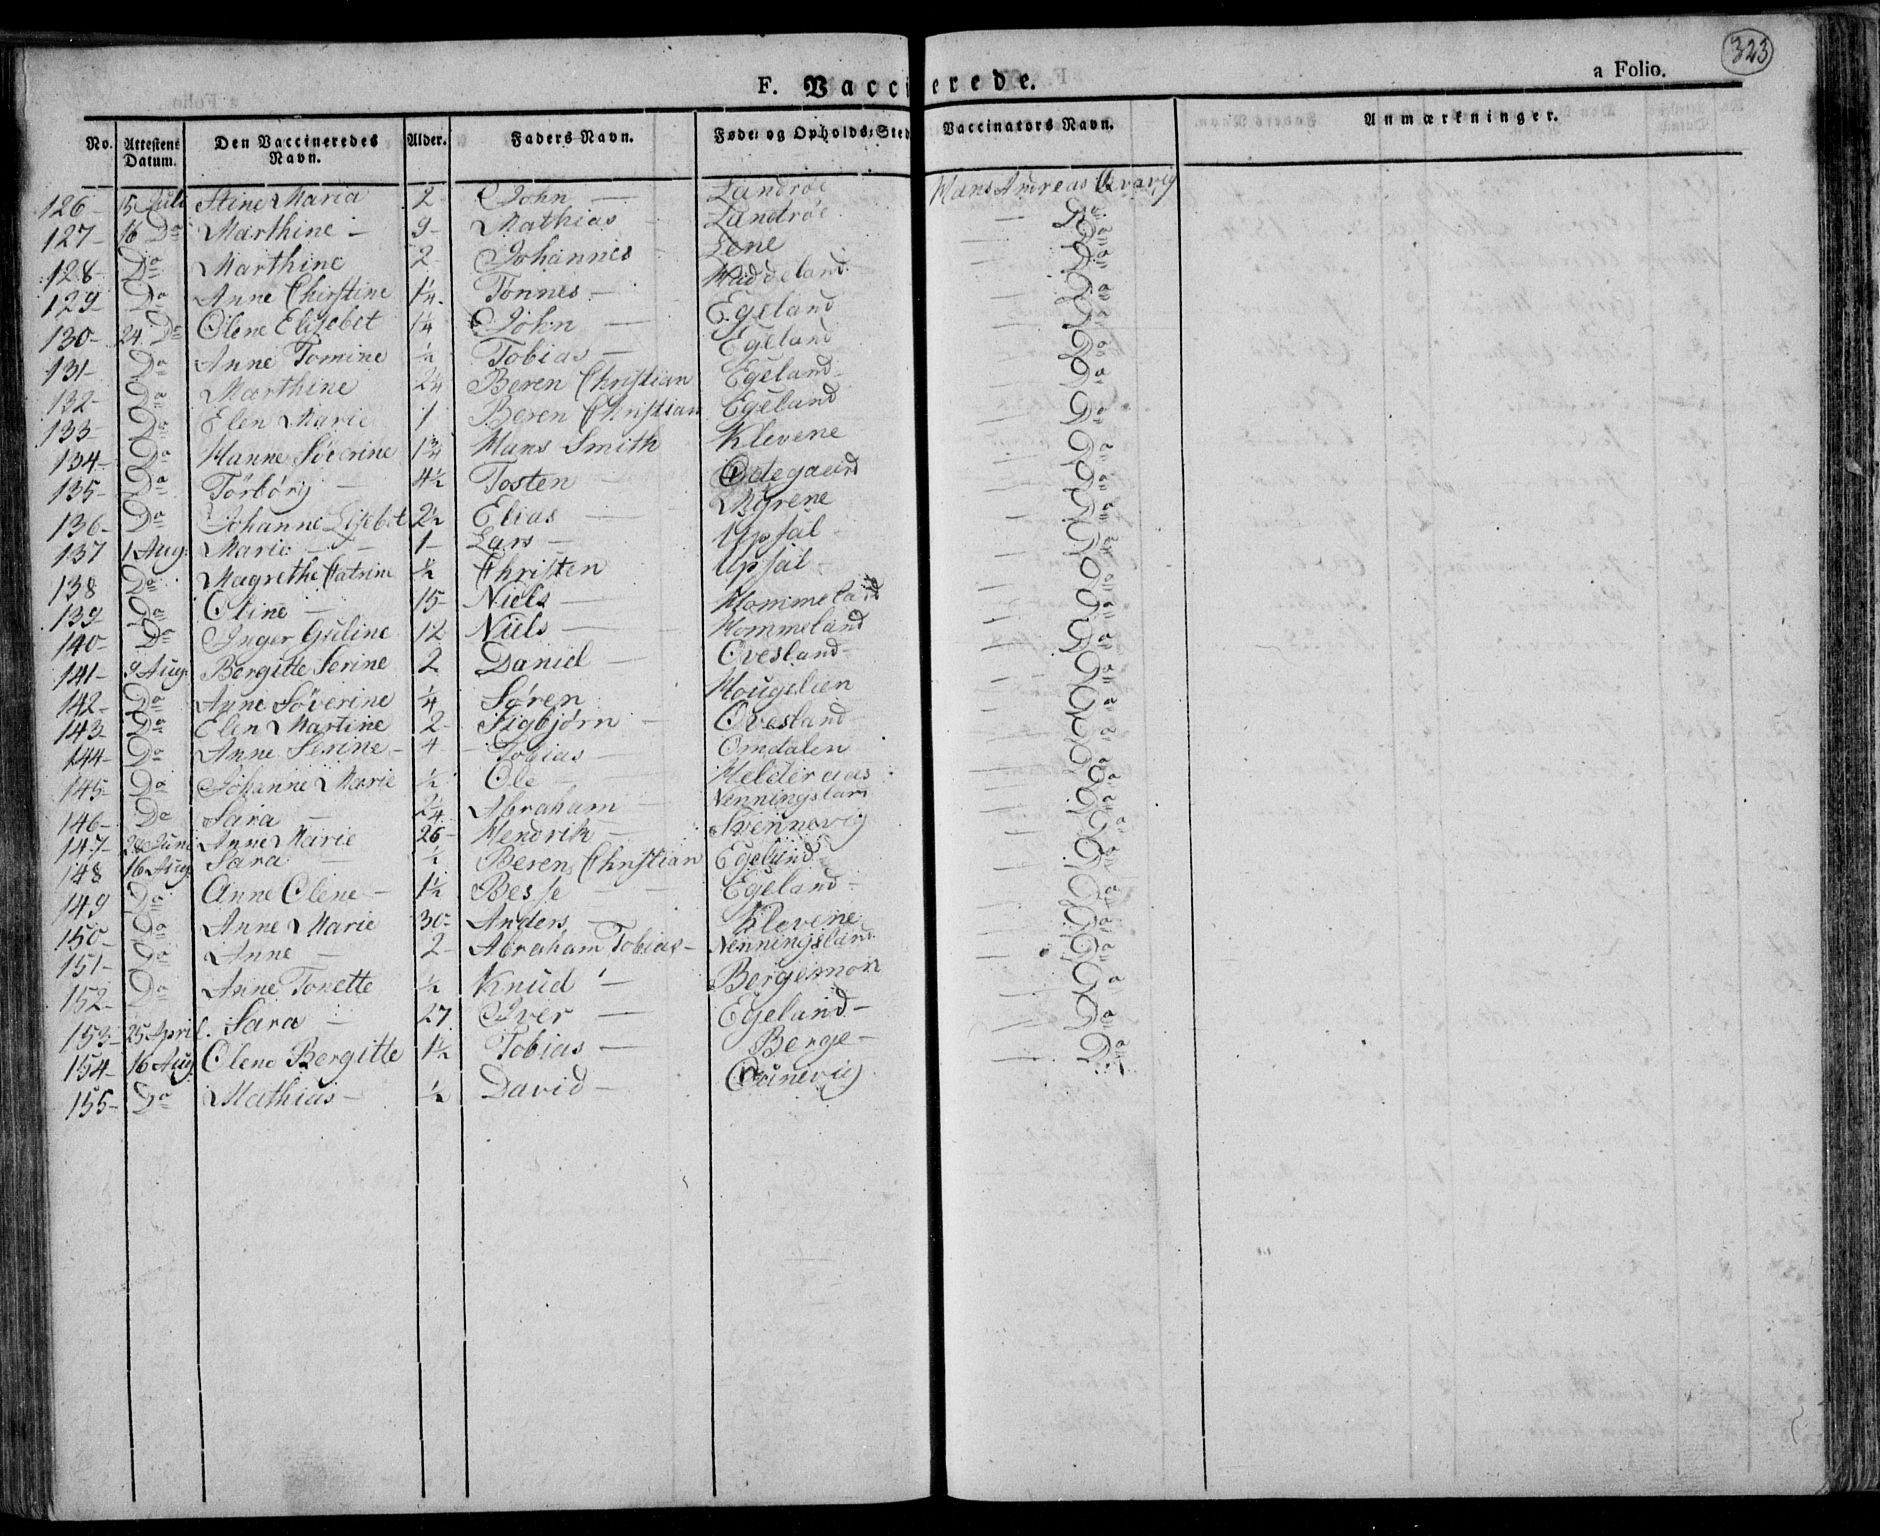 323
F. Vaccinerede.
a Folio.
No. Attestens Datum. Den Vaccineredes Navn. Alder. Faders Navn. Føde- og Opholds-Sted Vaccinators Navn. Anmærkninger.
126- 15 Juli Stine Maria 2 John - Landrøe Hans Andreas
127- 16 Do Marthine - 9- Mathias - Landrøe - Do
128- Do Marthine 2- Johannes Lene - Do
129- Do Anne Christine 1¼- Tønnes - Haddeland - Do
130- 24 Do Olene Elisebet 1¼ John - Egeland - Do
131- Do Anne Tomine ½ Tobias - Egeland - Do
132- Do Marthine 2¼ Beren Christian Egeland - Do
133- Do Elen Marie 1 Beren Christian Egeland - Do
134- Do Hanne Söverine 1¾ Hans Smith Klevene - Do
135- Do Törbörg - 4½ Tosten - Ödegaard - Do
136- Do Johanne Lisebet 2½ Elias - Myrene - Do
137 1 Aug: Marie - 1- Lars - Upsal - Do
138 Do Magrethe Catrine ½ Christen Upsal - Do
139 Do Oline - 15- Niels - Hommeland - Do
140- Do Inger Guline 12 Niels - Hommeland - Do
141- 9 Aug: Bergitte Serine 2 Daniel - Ovesland - Do
142- Do Anne Söverine ¼ Sören Hougelien - Do
143- Do Elen Martine 2- Sigbjørn - Ovesland - Do
144- Do Anne Serine - 4 Tobias - Omdalen - Do
145- Do Johanne Marie ½ Ole - Helderaas - Do
146- Do Sara - 2¼ Abraham - Nenningsland - Do
147- Juni Anne Marie 26- Hendrik - Svennevig - Do
148 16 Aug: Sara - ½ Beren Christian Egeland - Do
149 Do Anne Olene - 1½ Besse - Egeland - Do
150- Do Anne Marie 30- Anders - Klevene - Do
151- Do Anne - 2- Abraham Tobias - Nenningsland - Do
152- Do Anne Tonette ½ Knud - Bergemon - Do
153- 25 April Sara - 27 Iver - Egeland - Do
154- 16 Aug: Olene Bergitte 1½ Tobias - Berge - Do
155- Do Mathias - ½ David -